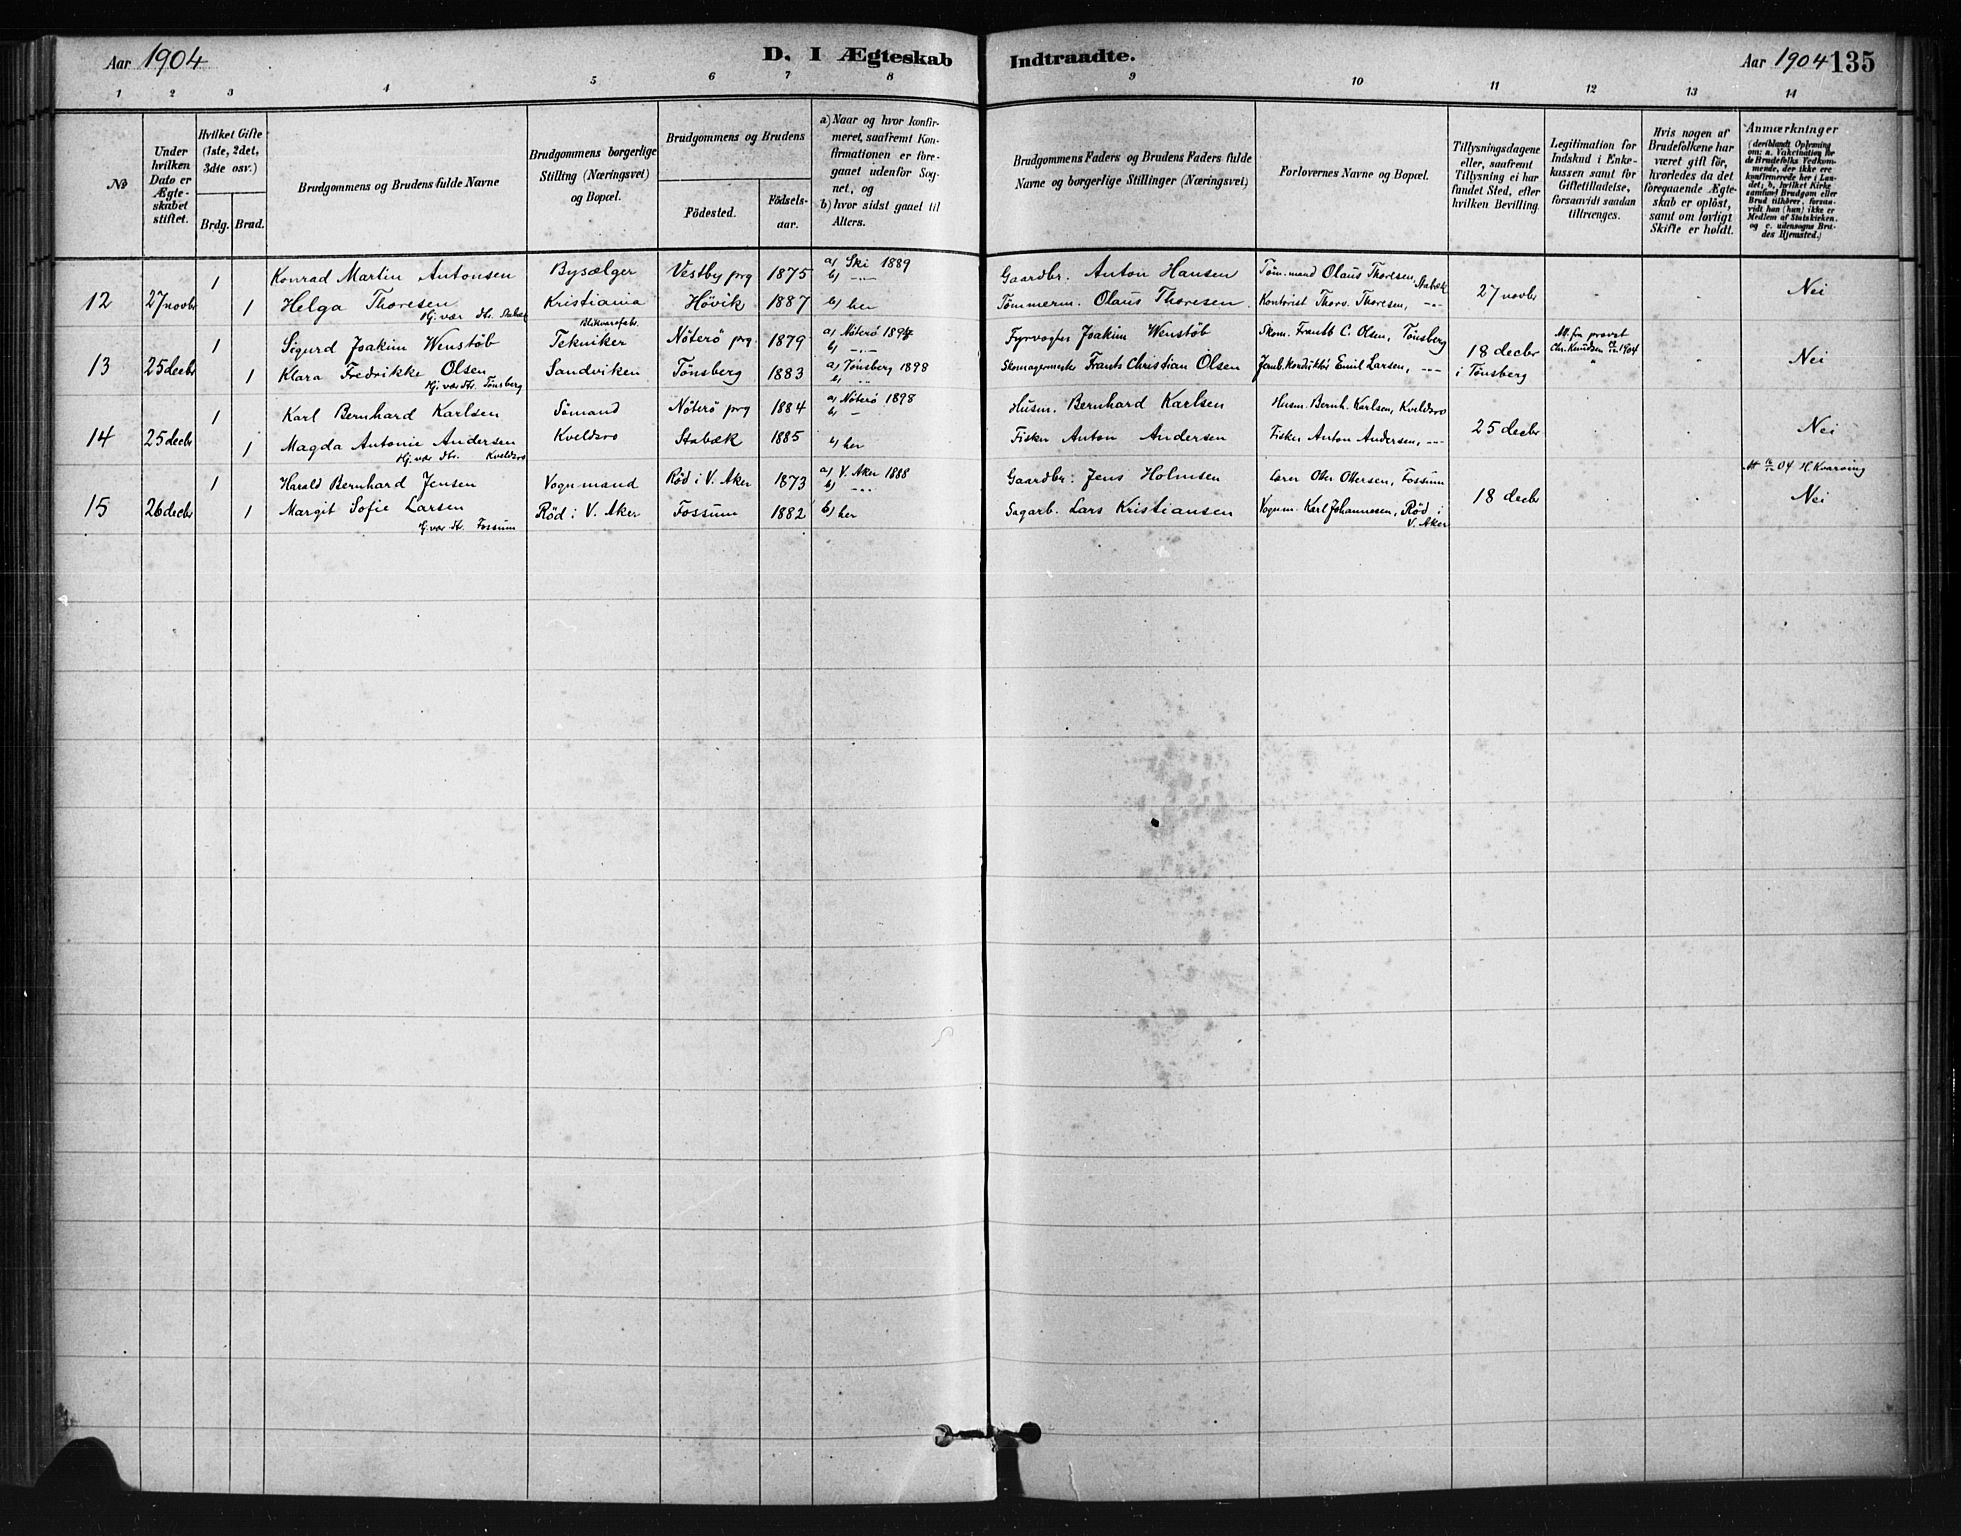 Aar 1904
D. I Ægteskab Indtraadte.
Aar 1904 135
1 2 3 4 5 6 7 8 9 10 11 12 13 14
No
Under hvilken Dato er Ægte-skabet stiftet.
Hvilket Gifte (1ste, 2det, 3die osv.)
Brdg. Brud.
Brudgommens og Brudens fulde Navne
Brudgommens borgerlige Stilling (Næringsvei) og Bopæl.
Brudgommens og Brudens
Födested.
Födsels-aar.
a) Naar og hvor konfir-meret, saafremt Kon-firmationen er fore-gaaet udenfor Sog-net, og
b) hvor sidst gaaet til Alters.
Brudgommens Faders og Brudens Faders fulde Navne og borgerlige Stillinger (Næringsvei)
Forlovernes Navne og Bopæl.
Tillysningsdagene eller, saafremt Tillysning ei har fundet Sted, efter hvilken Bevilling.
Legitimation for Indskud i Enke-kassen samt for Giftetilladelse, forsaavidt saadan tiltrænges.
Hvis nogen af Brudefolkene har været gift för, hvorledes da det foregaaende Ægte-skab er oplöst, samt om lovligt Skifte er holdt.
Anmærkninger (deriblandt Oplysning om: a. Vakcination for de Brudefolks Vedkom-mende, der ikke ere konfirmerede her i Lan-det; b. hvilket Kirke-samfund Brudgom eller Brud tilhörer, forsaa-vidt han (hun) ikke er Medlem af Statskirken, og c. udensogns Bru-des Hjemsted.)
1 Konrad Martin Antonsen Bysælger Vestby prg 1875 a) Ski 1889 b) -"- Gaardbr. Anton Hansen Töm.mand Olaus Thoresen, Stabæk
12 27 novbr 1 Helga Thoresen Kristiania Hövik 1887 b) her Tömmerm. Olaus Thoresen Kontorist Thorv. Thoresen, -"- 27 novbr " " Nei
Hj.vær. dtr. Stabæk
Blikvarefabr.
1 Sigurd Joakim Wenstöb Tekniker Nöterö prg 1879 a) Nöterö 1894 b) -"- Fyrvogter Joakim Wenstöb Skom. Frants C. Olsen, Tönsberg Att. fra provst Chr. Knudsen 1904
13 25 decbr 1 Klara Fredrikke Olsen Sandviken Tönsberg 1883 a) Tönsberg 1898 b) -"- Skomagermester Frants Christian Olsen Jernb.konduktör Emil Larsen, -"- 18 decbr i Tönsberg " " Nei
Hj.vær. dtr. Tönsberg
1 Karl Bernhard Karlsen Sömand Nöterö prg 1884 a) Nöterö 1898 b) - Husm. Bernhard Karlsen Husm. Bernh. Karlsen, Kveldsro
14 25 decbr 1 Magda Antonie Andersen Kveldsro Stabæk 1885 b) her Fisker Anton Andersen Fisker Anton Andersen, -"- 25 decbr " " Nei
Hj.vær. dtr. Kveldsro
1 Harald Bernhard Jensen Vognmand Röd i V. Aker 1873 a) V. Aker 1888 b) -"- Gaardbr. Jens Holmsen Otter Ottersen, Fossum Att 04 H. Kvarving
15 26 decbr 1 Margit Sofie Larsen Röd i V. Aker Fossum 1882 b) her Sagarb. Lars Kristiansen Vognm. Karl Johannesen, Röd i V. Aker 18 decbr " " Nei
Hj.vær. dtr. Fossum